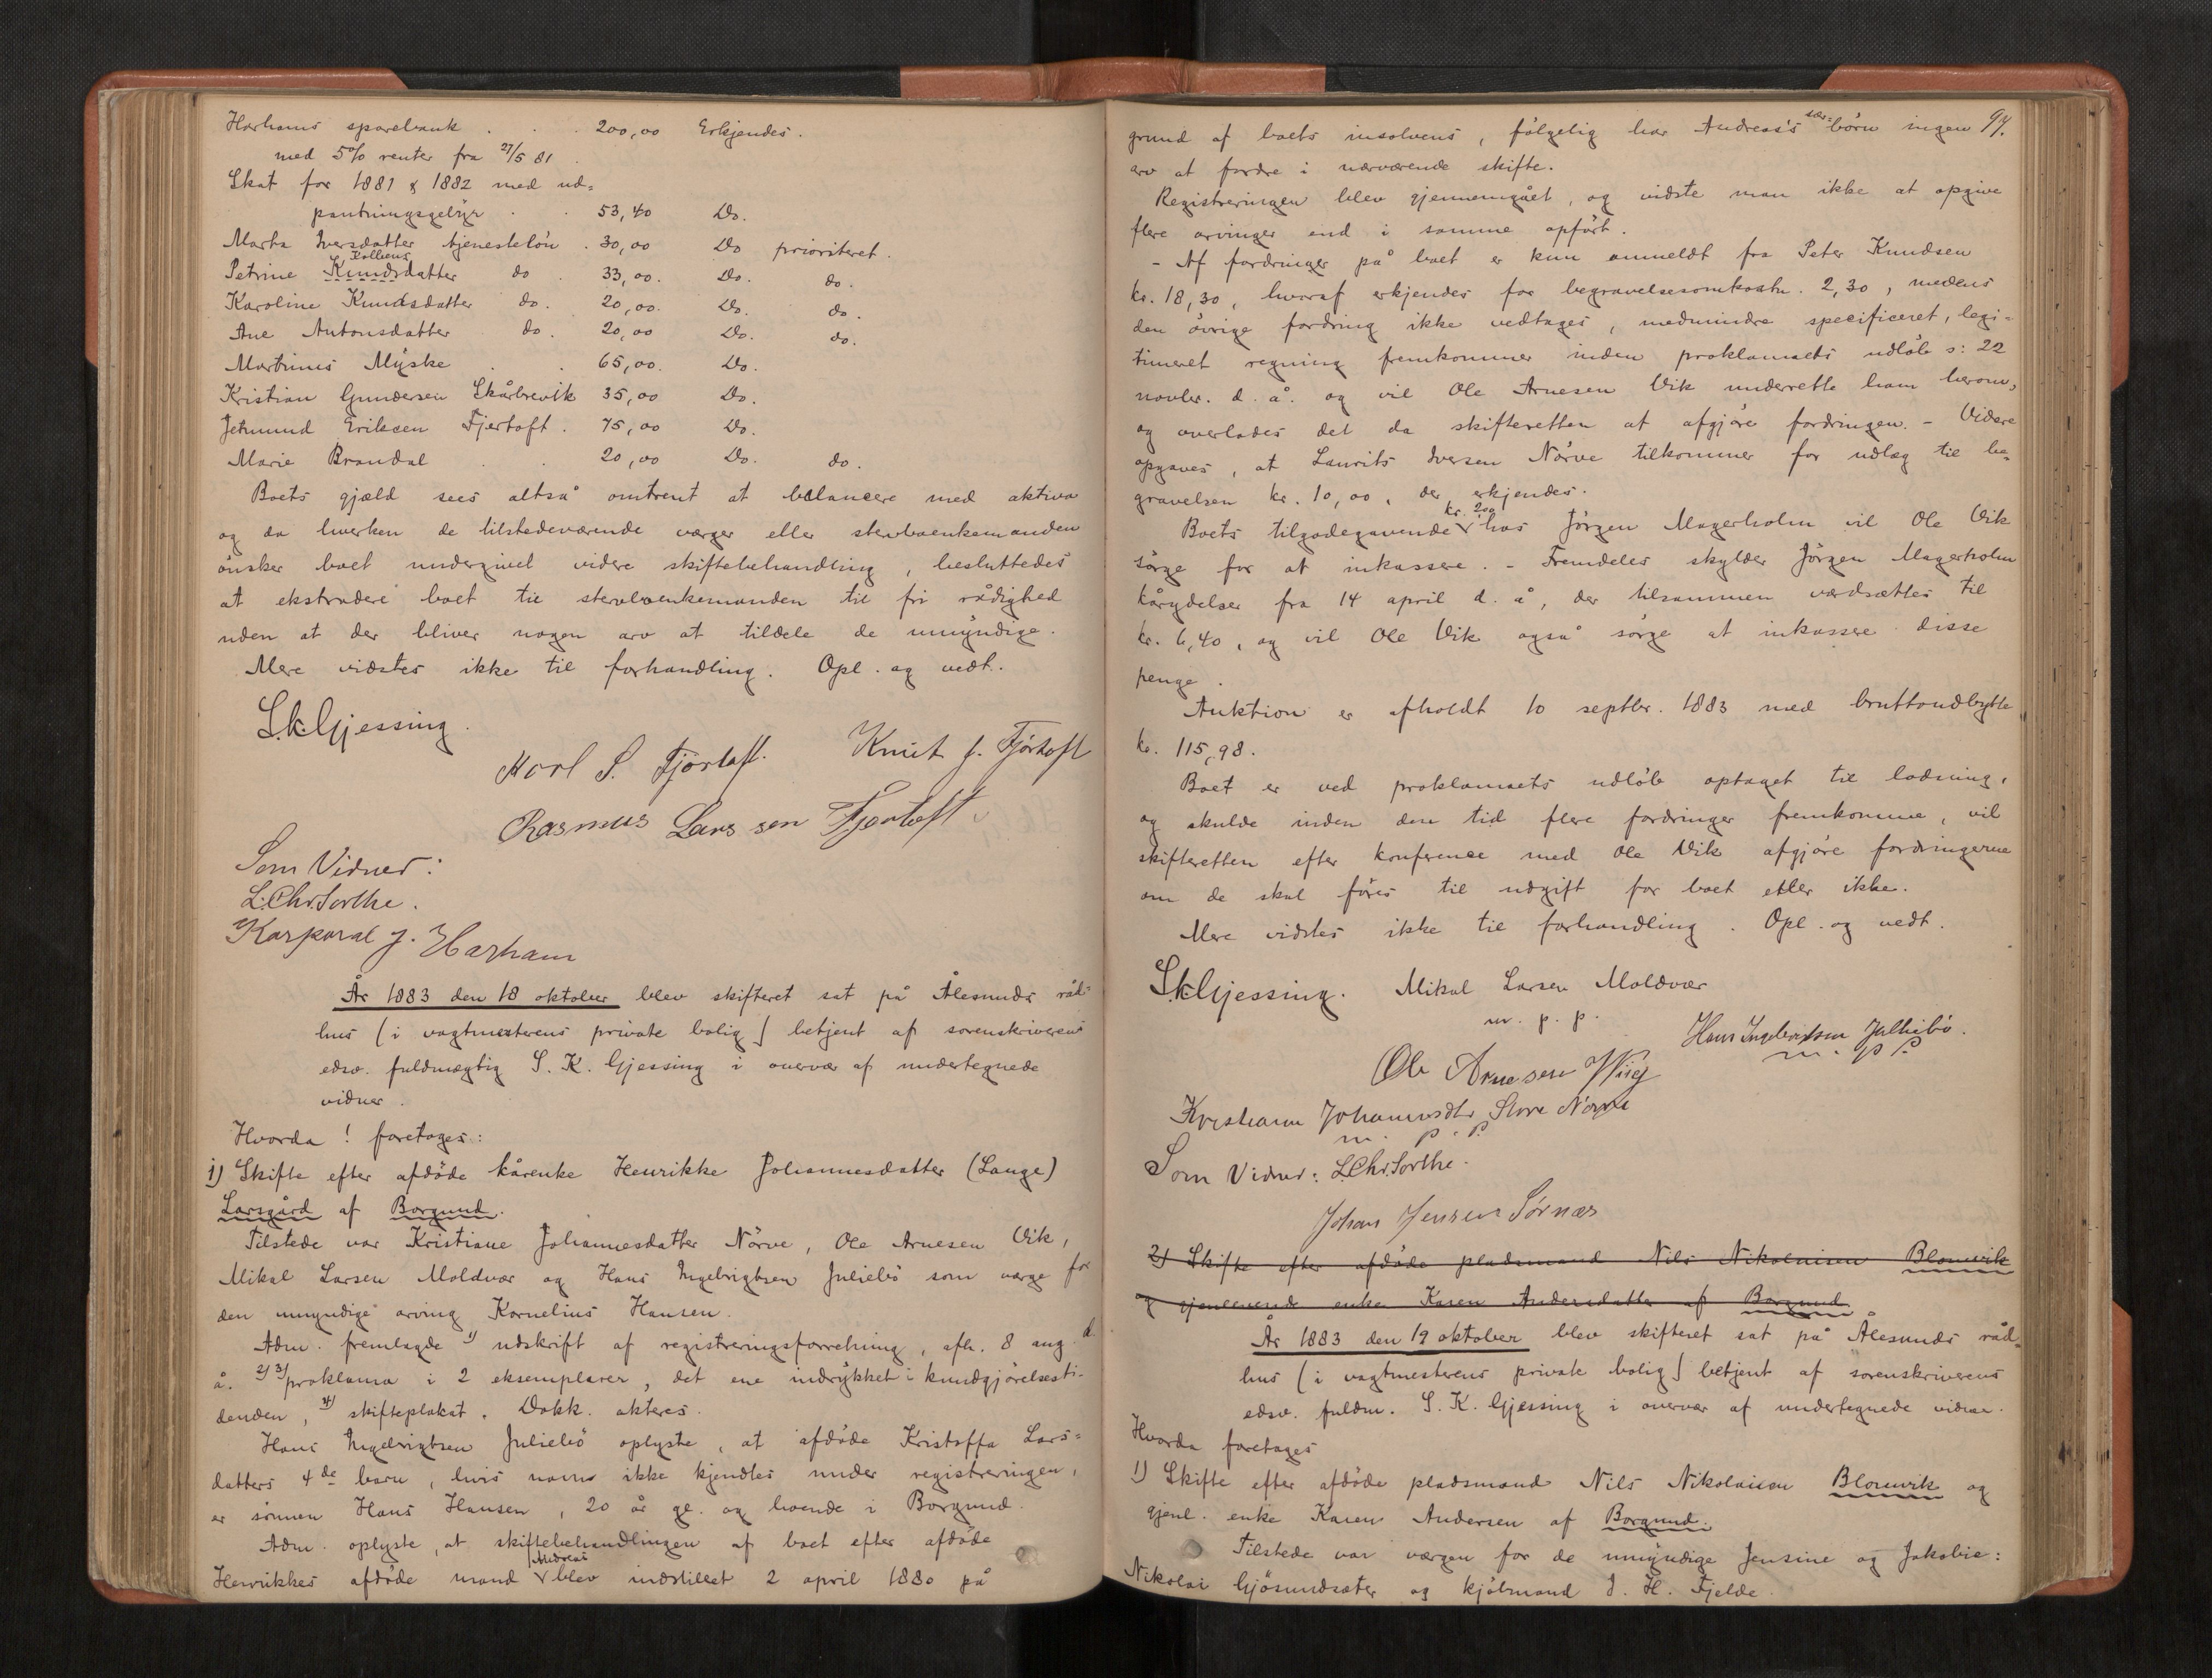 Harhams sparebank . . . 200,00 Erkjendes.
med 5% renter fra 27/5 81 .
Skat for 1881 & 1882 med ud-
pantningsgebyr . . 53,40 Do.
Marta Iversdatter tjenesteløn . 30,00 Do prioriteret.
Kolbens
Petrine Knudsdatter do . 33,00. Do. do.
Karoline Knudsdatter do. 20,00. Do. do.
Ane Antonsdatter do. 20,00 Do. do.
Martinus Myske . . 65,00. Do.
Kristian Gundersen Skårbrevik 35,00 Do.
Jetmund Eriksen Fjertoft . 75,00 Do.
Marie Brandal . . 20,00 Do. do.
Boets gjæld sees altså omtrent at balancere med aktiva
og da hverken de tilstedeværende værger eller stervboenkemanden
ønsker boet undergivet videre skiftebehandling, besluttedes
at ekstradere boet til stervboenkemanden til fri rådighed
uden at der bliver nogen arv at tildele de umyndige.
Mere vidstes ikke til forhandling. Opl. og vedt.
S.k.Gjessing.
Karl S. Fjørtaft. Knut J. Fjørtoft
Rasmus Lars sen Fjertoft
Som Vidner:
L.Chr.Sorthe.
Karparal J. Harham
År 1883 den 18 oktober blev skifteret sat på Ålesunds råd-
hus (i vagtmesterens private bolig) betjent af sorenskriverens
edsv. fuldmægtig S. K. Gjessing i overvær af undertegnede
vidner.
Hvorda ! foretages:
1) Skifte efter afdøde kårenke Henrikke Johannesdatter (Lange)
Larsgård af Borgund.
Tilstede var Kristiane Johannesdatter Nørve, Ole Arnesen Vik,
Mikal Larsen Moldvær og Hans Ingebrigtsen Juliebø som værge for
den umyndige arving Kornelius Hansen.
Adm. fremlagde 1) udskrift af registreringsforretning, afh. 8 aug d.
å. 2) 3) proklama i 2 eksemplarer, det ene indrykket i kundgjørelsesti-
denden, 4) skifteplakat. Dokk. akteres.
Hans Ingebrigtsen Juliebø oplyste, at afdøde Kristoffa Lars-
datters 4de barn, hvis navn ikke kjendtes under registreringen,
er sønnen Hans Hansen, 20 år gl. og boende i Borgund.
Adm. oplyste, at skiftebehandlingen af boet efter afdøde
Andreas
Henrikkes afdøde mand blev indstillet 2 april 1880 på
94.
sær-
grund af boets insolvens, følgelig har Andreas's børn ingen
arv at fordre i nærværende skifte.
Registreringen blev gjennemgået, og vidste man ikke at opgive
flere arvinger end i samme opført.
- Af fordringer på boet er kun anmeldt fra Peter Knudsen
kr. 18,30, hvoraf erkjendes for begravelsesomkostn. 2,30, medens
den øvrige fordring ikke vedtages, medmindre specificeret, legi-
timeret regning fremkommer inden proklamaets udløb s: 22
novbr. d. å. og vil Ole Arnesen Vik underrette ham herom,
og overlades det da skifteretten at afgjøre fordringen. - Videre
opgaves, at Laurits Iversen Nørve tilkommer for udlæg til be-
gravelsen kr. 10,00, der erkjendes.
kr. 200
Boets tilgodehavende hos Jørgen Magerholm vil Ole Vik
sørge for at inkassere. - Fremdeles skylder Jørgen Magerholm
kårydelser fra 14 april d. å, der tilsammen værdsættes til
kr. 6,40, og vil Ole Vik også sørge at inkassere disse
penge.
Auktion er afholdt 10 septbr. 1883 med bruttoudbytte
kr. 115,98.
Boet er ved proklamaets udløb optaget til lodning,
og skulde inden den tid flere fordringer fremkomme, vil
skifteretten efter konference med Ole Vik afgjøre fordringerne
om de skal føres til udgift for boet eller ikke.
Mere vidstes ikke til forhandling. Opl. og vedt.
S.k.Gjessing. Mikal Larsen Moldvær
m. p. p.
Hans Ingebrigtsen Julliebø.
m. p. p.
Ole Arnesen Wiig
Kristiane Johannesdtr Store Nørve
m. p. p.
Som Vidner: L.Chr.Sorthe.
Johan Jensen Sørnæs
2) Skifte efter afdøde pladsmand Nils Nikolaisen Blomvik
og gjenlevende enke Karen Andersdatter af Borgund.
År 1883 den 19 oktober blev skifteret sat på Ålesunds råd-
hus (i vagtmesterens private bolig) betjent af sorenskriverens
edsv. fuldm. S. K. Gjessing i overvær af undertegnede vidner.
Hvorda foretages
1) Skifte efter afdøde pladsmand Nils Nikolaisen Blomvik og
gjenl. enke Karen Andersen af Borgund.
Tilstede var værgen for de umyndige Jensine og Jakobie:
Nikolai Gjøsundsæter og kjøbmand J. H. Fjelde.